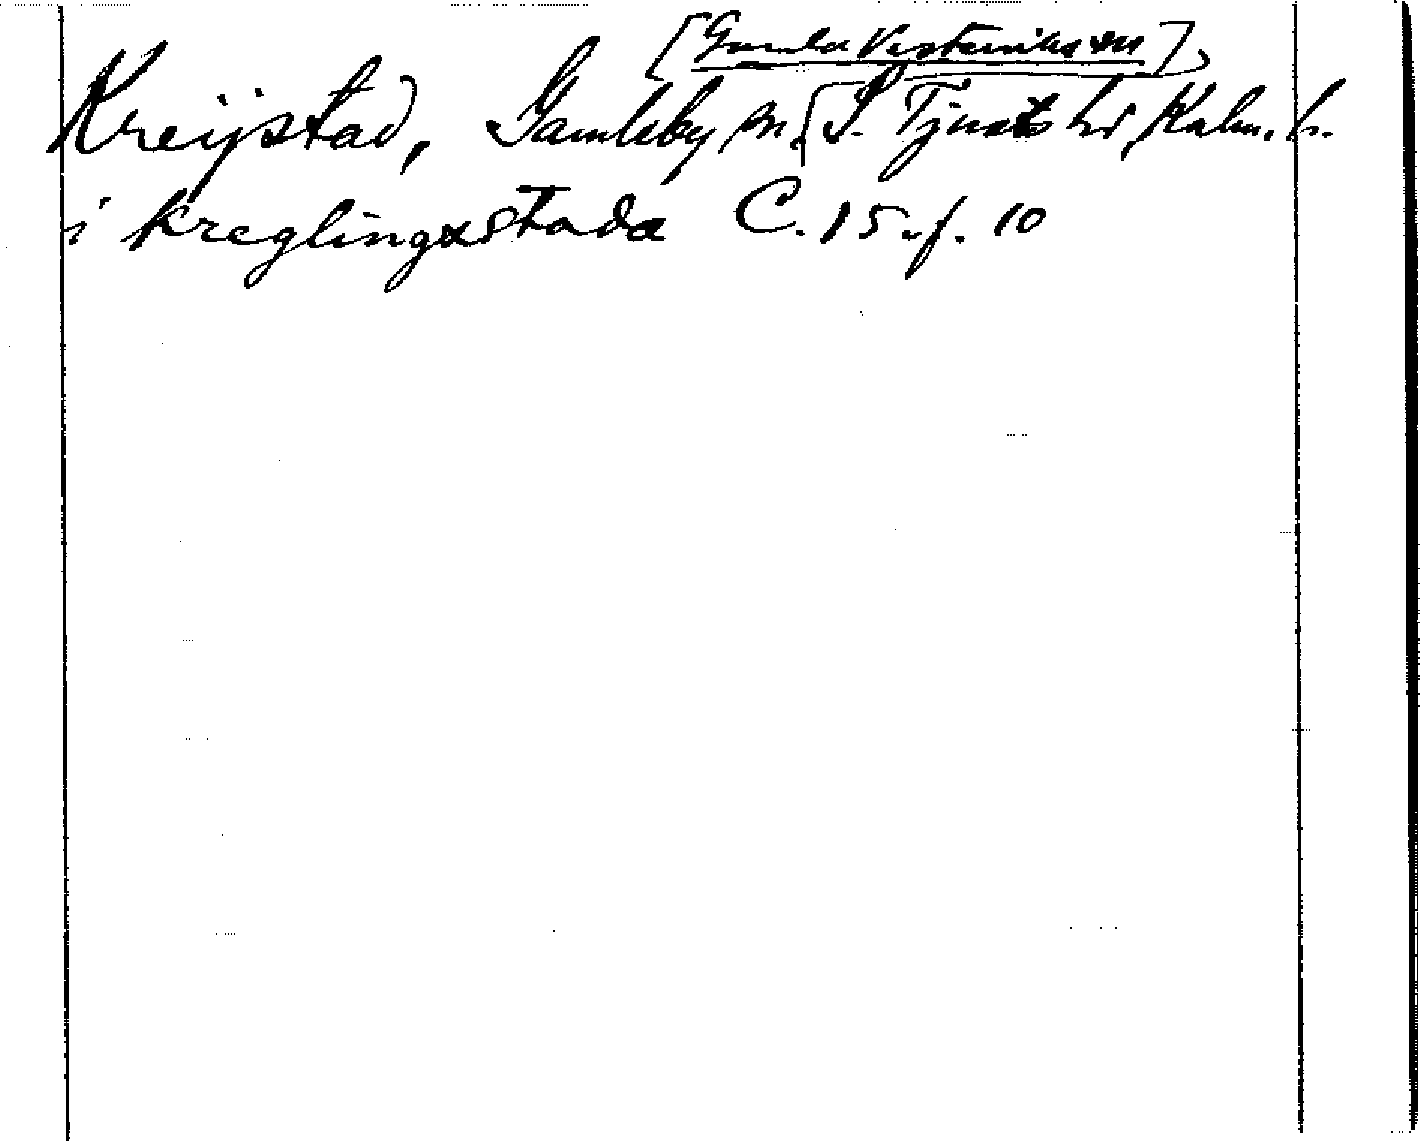 [Gamla Vesterviks sn]
Kreijstad, Gamleby sn. S. Tjusts hd, Kalm. l.
i kreglingxstada C. 15. f. 10